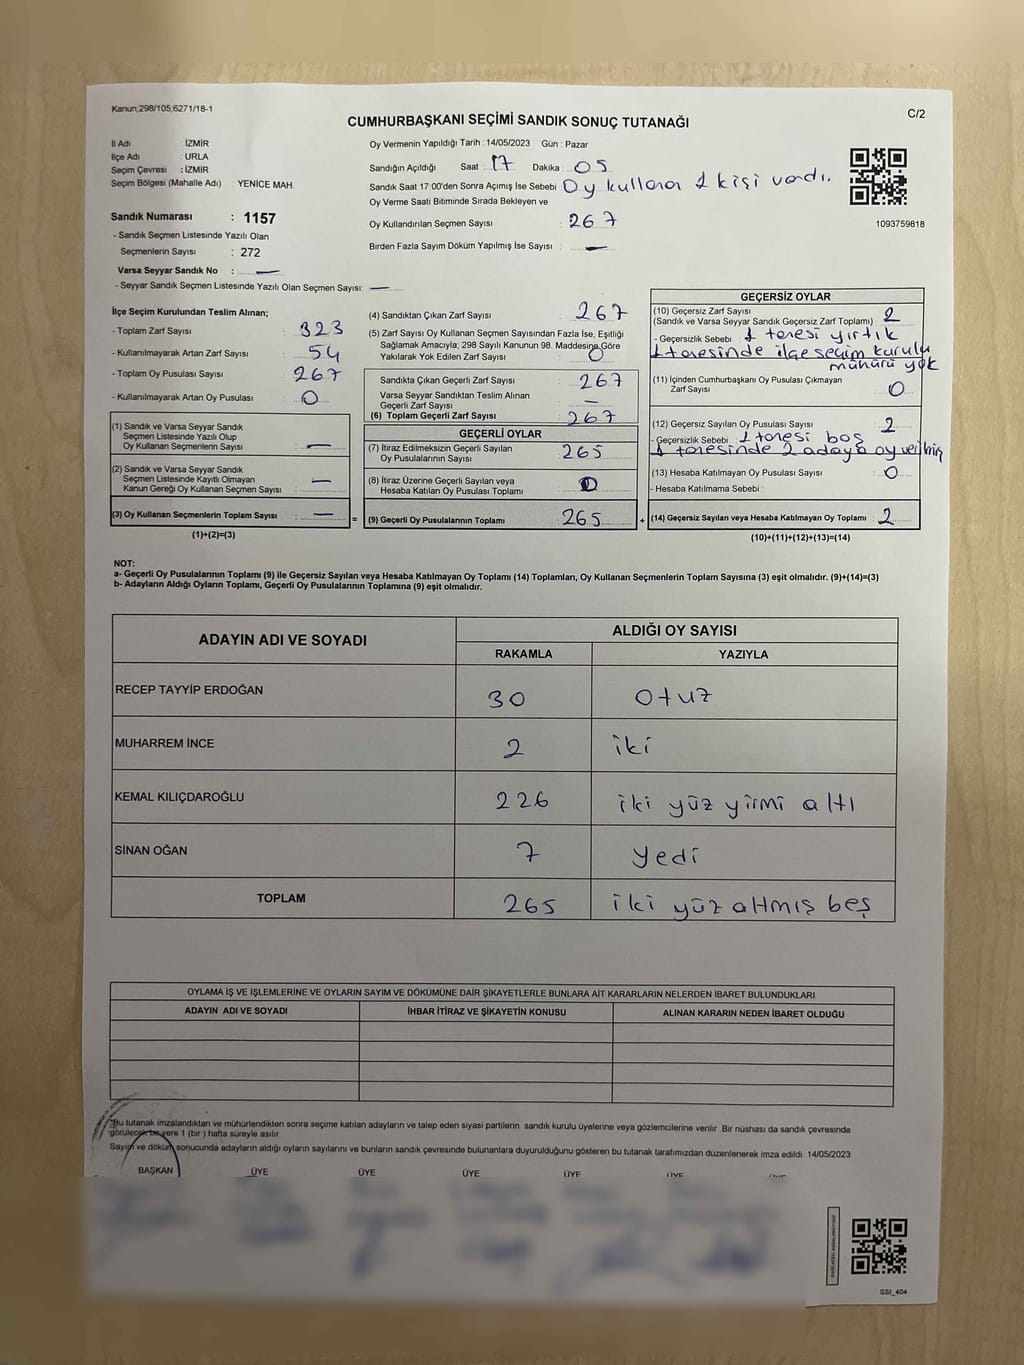 Kanun:298/105;6271/18-1
C/2
CUMHURBAŞKANI SEÇİMİ SANDIK SONUÇ TUTANAĞI
İl Adı İZMİR
İlçe Adı : URLA
Seçim Çevresi : İZMİR
Seçim Bölgesi (Mahalle Adı) : YENİCE MAH.
Sandık Numarası : 1157
- Sandık Seçmen Listesinde Yazılı Olan
Seçmenlerin Sayısı : 272
Varsa Seyyar Sandık No : —
- Seyyar Sandık Seçmen Listesinde Yazılı Olan Seçmen Sayısı: —
Oy Vermenin Yapıldığı Tarih : 14/05/2023 Gün : Pazar
Sandığın Açıldığı Saat : 17 Dakika : 05
Sandık Saat 17:00'den Sonra Açımış İse Sebebi Oy kullanan 1 kişi vardı.
Oy Verme Saati Bitiminde Sırada Bekleyen ve
Oy Kullandırılan Seçmen Sayısı : 267
Birden Fazla Sayım Döküm Yapılmış İse Sayısı : —
1093759818
İlçe Seçim Kurulundan Teslim Alınan;
- Toplam Zarf Sayısı : 323
- Kullanılmayarak Artan Zarf Sayısı : 54
- Toplam Oy Pusulası Sayısı : 267
- Kullanılmayarak Artan Oy Pusulası : 0
(1) Sandık ve Varsa Seyyar Sandık
Seçmen Listesinde Yazılı Olup
Oy Kullanan Seçmenlerin Sayısı : —
(2) Sandık ve Varsa Seyyar Sandık
Seçmen Listesinde Kayıtlı Olmayan
Kanun Gereği Oy Kullanan Seçmen Sayısı : —
(3) Oy Kullanan Seçmenlerin Toplam Sayısı : —
=
(1)+(2)=(3)
(4) Sandıktan Çıkan Zarf Sayısı : 267
(5) Zarf Sayısı Oy Kullanan Seçmen Sayısından Fazla İse, Eşitliği
Sağlamak Amacıyla; 298 Sayılı Kanunun 98. Maddesine Göre
Yakılarak Yok Edilen Zarf Sayısı : 0
Sandıkta Çıkan Geçerli Zarf Sayısı : 267
Varsa Seyyar Sandıktan Teslim Alınan
Geçerli Zarf Sayısı : —
(6) Toplam Geçerli Zarf Sayısı : 267
GEÇERLİ OYLAR
(7) İtiraz Edilmeksizin Geçerli Sayılan
Oy Pusulalarının Sayısı : 265
(8) İtiraz Üzerine Geçerli Sayılan veya
Hesaba Katılan Oy Pusulası Toplamı : 0
(9) Geçerli Oy Pusulalarının Toplamı : 265
+
GEÇERSİZ OYLAR
(10) Geçersiz Zarf Sayısı
(Sandık ve Varsa Seyyar Sandık Geçersiz Zarf Toplamı) : 2
- Geçersizlik Sebebi : 1 tanesi yırtık
1 tanesinde ilçe seçim kurulu
mühürü yok
(11) İçinden Cumhurbaşkanı Oy Pusulası Çıkmayan
Zarf Sayısı : 0
(12) Geçersiz Sayılan Oy Pusulası Sayısı : 2
- Geçersizlik Sebebi : 1 tanesi boş
1 tanesinde 2 adaya oy verilmiş
(13) Hesaba Katılmayan Oy Pusulası Sayısı : 0
- Hesaba Katılmama Sebebi :
(14) Geçersiz Sayılan veya Hesaba Katılmayan Oy Toplamı : 2
(10)+(11)+(12)+(13)=(14)
NOT:
a- Geçerli Oy Pusulalarının Toplamı (9) ile Geçersiz Sayılan veya Hesaba Katılmayan Oy Toplamı (14) Toplamları, Oy Kullanan Seçmenlerin Toplam Sayısına (3) eşit olmalıdır. (9)+(14)=(3)
b- Adayların Aldığı Oyların Toplamı, Geçerli Oy Pusulalarının Toplamına (9) eşit olmalıdır.
ADAYIN ADI VE SOYADI
ALDIĞI OY SAYISI
RAKAMLA YAZIYLA
RECEP TAYYİP ERDOĞAN 30 otuz
MUHARREM İNCE 2 iki
KEMAL KILIÇDAROĞLU 226 iki yüz yirmi altı
SİNAN OĞAN 7 yedi
TOPLAM 265 iki yüz altmış beş
OYLAMA İŞ VE İŞLEMLERİNE VE OYLARIN SAYIM VE DÖKÜMÜNE DAİR ŞİKAYETLERLE BUNLARA AİT KARARLARIN NELERDEN İBARET BULUNDUKLARI
ADAYIN ADI VE SOYADI İHBAR İTİRAZ VE ŞİKAYETİN KONUSU ALINAN KARARIN NEDEN İBARET OLDUĞU
Bu tutanak imzalandıktan ve mühürlendikten sonra seçime katılan adayların ve talep eden siyasi partilerin sandık kurulu üyelerine veya gözlemcilerine verilir. Bir nüshası da sandık çevresinde
görülecek bir yere 1 (bir) hafta süreyle asılır.
Sayım ve döküm sonucunda adayların aldığı oyların sayılarını ve bunların sandık çevresinde bulunanlara duyurulduğunu gösteren bu tutanak tarafımızdan düzenlenerek imza edildi. 14/05/2023
BAŞKAN ÜYE ÜYE ÜYE ÜYE ÜYE
SSI_404